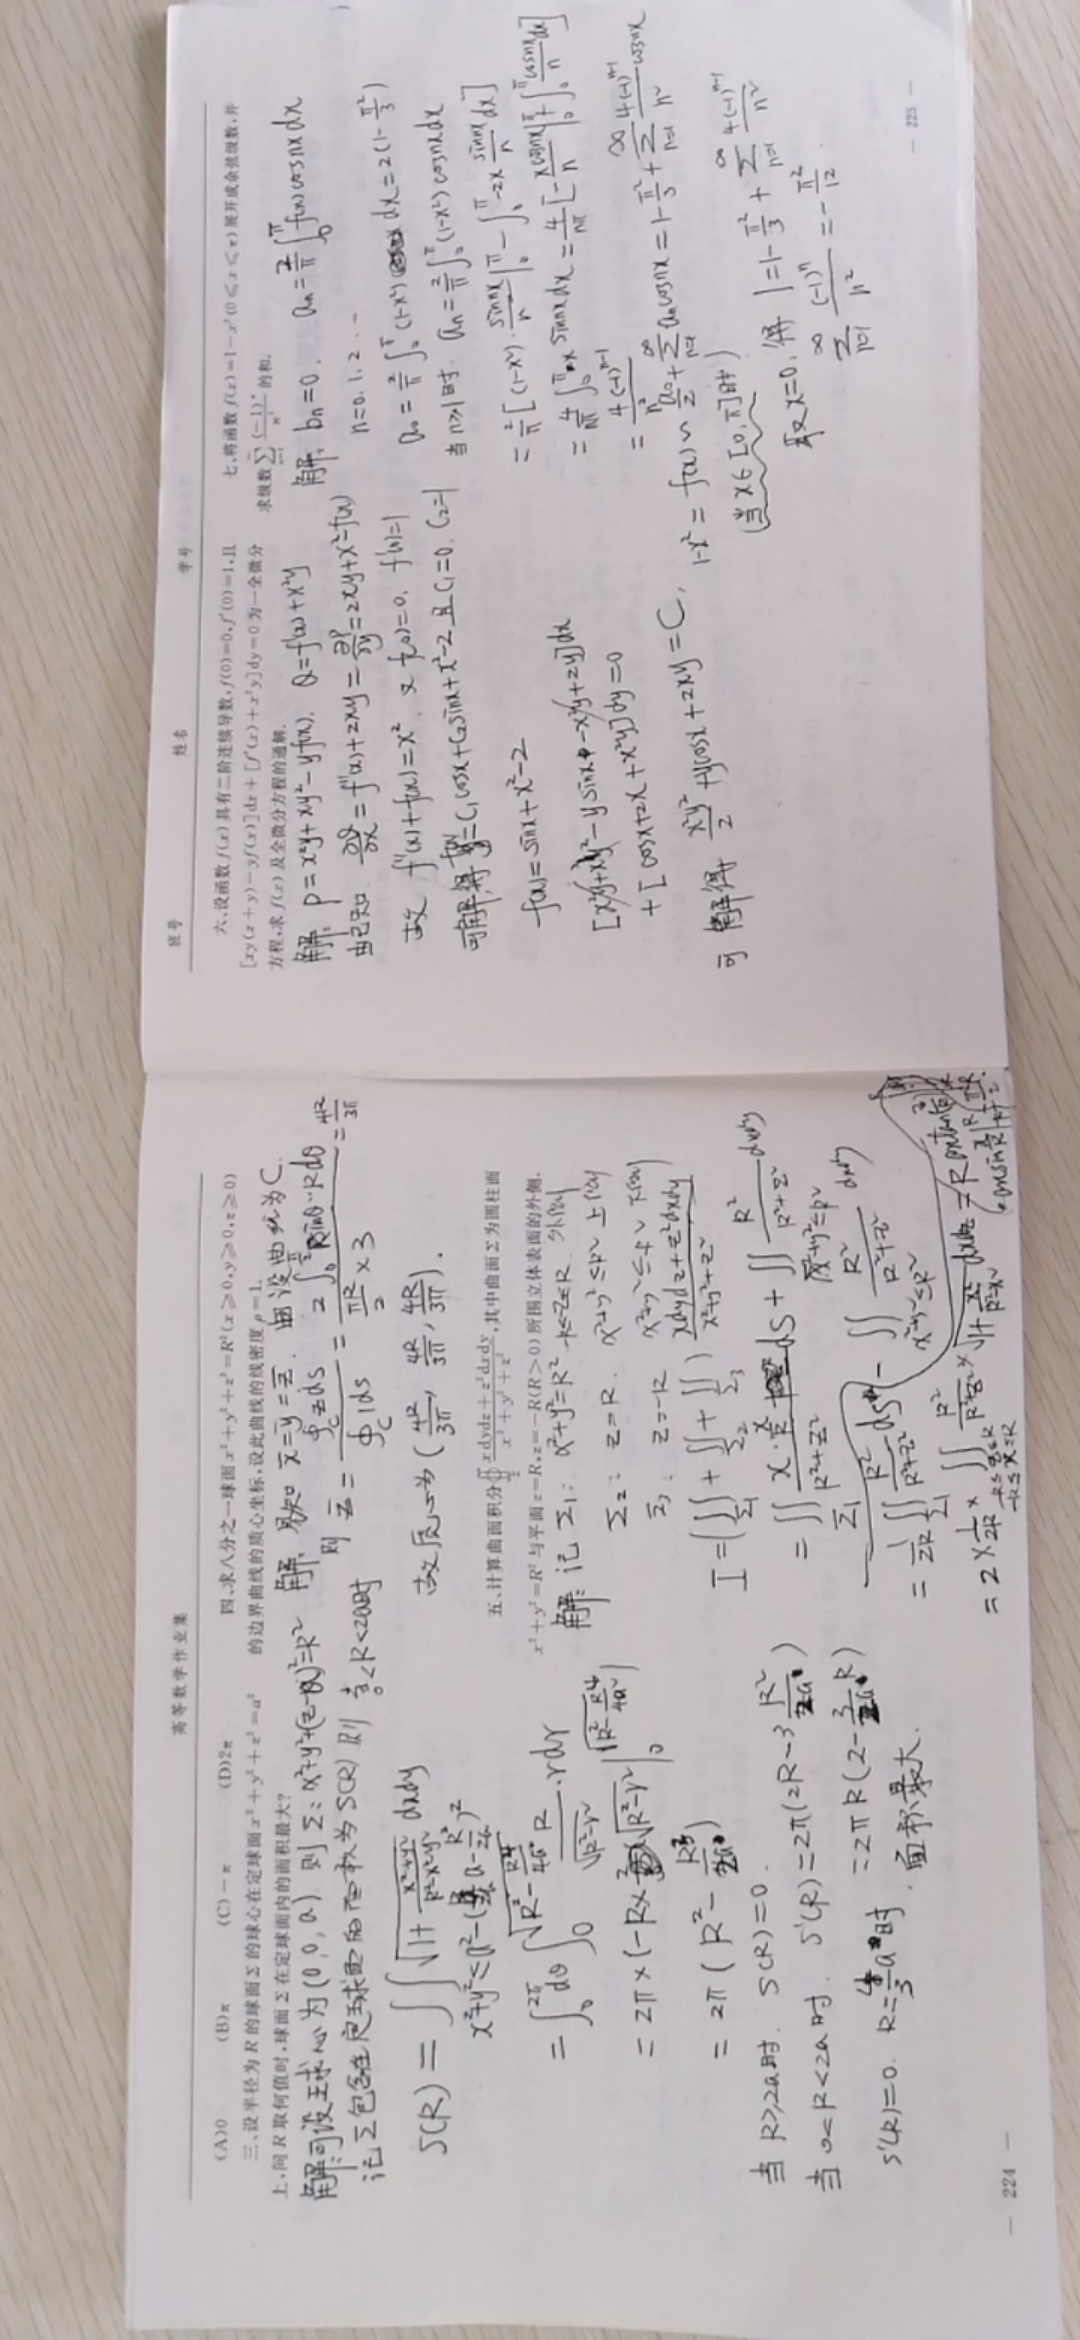 高等数学作业集
(A)0 (B)π (C)-π (D)2π
三、设半径为 R 的球面 Σ 的球心在定球面 x²+y²+z²=a²
上,问 R 取何值时,球面 Σ 在定球面内的面积最大?
解:可设球心为(0,0,a). 则 Σ: x²+y²+(z-a)²=R²
记Σ包含在定球面的面积为S(R) 则 当0<R<2a时
S(R) = ∬ √(1+(x²+y²)/(R²-x²-y²)) dxdy
x²+y²≤a²-(a-R²/2a)²
= ∫₀^2π dθ ∫₀^√(R²-R⁴/4a²) R/√(R²-r²) ·rdr
= 2π(R²-R³/2a)
当 R≥2a时. S(R)=0.
当 0<R<2a时. S'(R)=2π(2R-3R²/2a)
=2πR(2-3/2a R)
S'(R)=0. R=4/3 a时
面积最大.
— 224 —
四、求八分之一球面 x²+y²+z²=R²(x≥0,y≥0,z≥0)
的边界曲线的质心坐标,设此曲线的线密度 ρ=1.
解: 易知 x̄=ȳ=z̄. 设曲线为C.
则 z̄ = ∮_C zds / ∮_C 1ds = 2∫₀^(π/2) Rsinθ·Rdθ / (πR/2 ×3) = 4R/3π
故质心为 (4R/3π, 4R/3π, 4R/3π).
五、计算曲面积分∯_Σ (xdydz+z²dxdy)/(x²+y²+z²),其中曲面 Σ 为圆柱面
x²+y²=R² 与平面 z=R,z=-R(R>0)所围立体表面的外侧.
解: 记 Σ₁: x²+y²=R² -R≤z≤R. 外侧
Σ₂: z=R. x²+y²≤R² 上侧
Σ₃: z=-R x²+y²≤R² 下侧
I=(∬_Σ₁ + ∬_Σ₂ + ∬_Σ₃) (xdydz+z²dxdy)/(x²+y²+z²)
x²+y²≤R²
- ∬ R²/(R²+z²) dxdy
x²+y²≤R²
= 1/2R ∬_Σ₁ R²/(R²+z²) dS
= 2×1/2R × ∬ R²/(R²+z²) × √(1+x²/(R²-x²)) dxdz
-R≤z≤R
-R≤x≤R
班号 姓名 学号
六、设函数 f(x)具有二阶连续导数,f(0)=0,f'(0)=1,且
[xy(x+y)-yf(x)]dx+[f'(x)+x²y]dy=0 为一全微分
方程,求 f(x)及全微分方程的通解.
解: P=x²y+xy²-yf(x). Q=f'(x)+x²y
由已知 ∂Q/∂x = f''(x)+2xy = ∂P/∂y=2xy+x²-f(x)
故 f''(x)+f(x)=x² 又 f(0)=0. f'(0)=1
可解得 f(x)=C₁cosx+C₂sinx+x²-2 且 C₁=0. C₂=1
f(x)=sinx+x²-2
[x²y+xy²-ysinx-x²y+2y]dx
+[cosx+2x+x²y]dy=0
可解得 x²y²/2+ycosx+2xy=C,
七、将函数 f(x)=1-x²(0≤x≤π)展开成余弦级数,并
求级数 Σ_(n=1)^∞ (-1)ⁿ/n² 的和.
解: bₙ=0. aₙ=2/π ∫₀^π f(x)cosnxdx
n=0.1.2…
a₀=2/π ∫₀^π (1-x²) dx=2(1-π²/3)
当n≥1时. aₙ=2/π ∫₀^π (1-x²)cosnxdx
=2/π [(1-x²)·sinnx/n |₀^π - ∫₀^π -2x sinnx/n dx]
=4/nπ ∫₀^π x sinnxdx=4/nπ [-xcosnx/n |₀^π + ∫₀^π cosnx/n dx]
=4(-1)ⁿ⁻¹/n²
1-x²=f(x)~a₀/2+Σ_(n=1)^∞ aₙcosnx=1-π²/3+Σ_(n=1)^∞ 4(-1)ⁿ⁻¹/n² cosnx
(当x∈[0,π]时)
取x=0,得 1=1-π²/3+Σ_(n=1)^∞ 4(-1)ⁿ⁻¹/n²
Σ_(n=1)^∞ (-1)ⁿ/n²=-π²/12
— 225 —